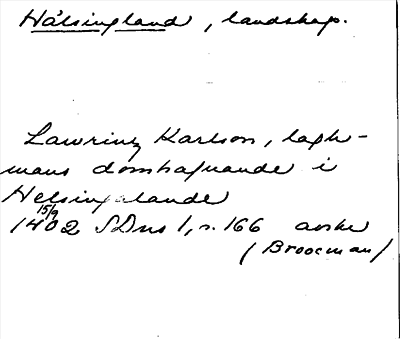 Hälsingland, landskap.
Lawrinz Karlson, lagh-
mans domhafuande i
Helsingalande
15/9
1402 SDns 1, n. 166 avskr
(Broocman)